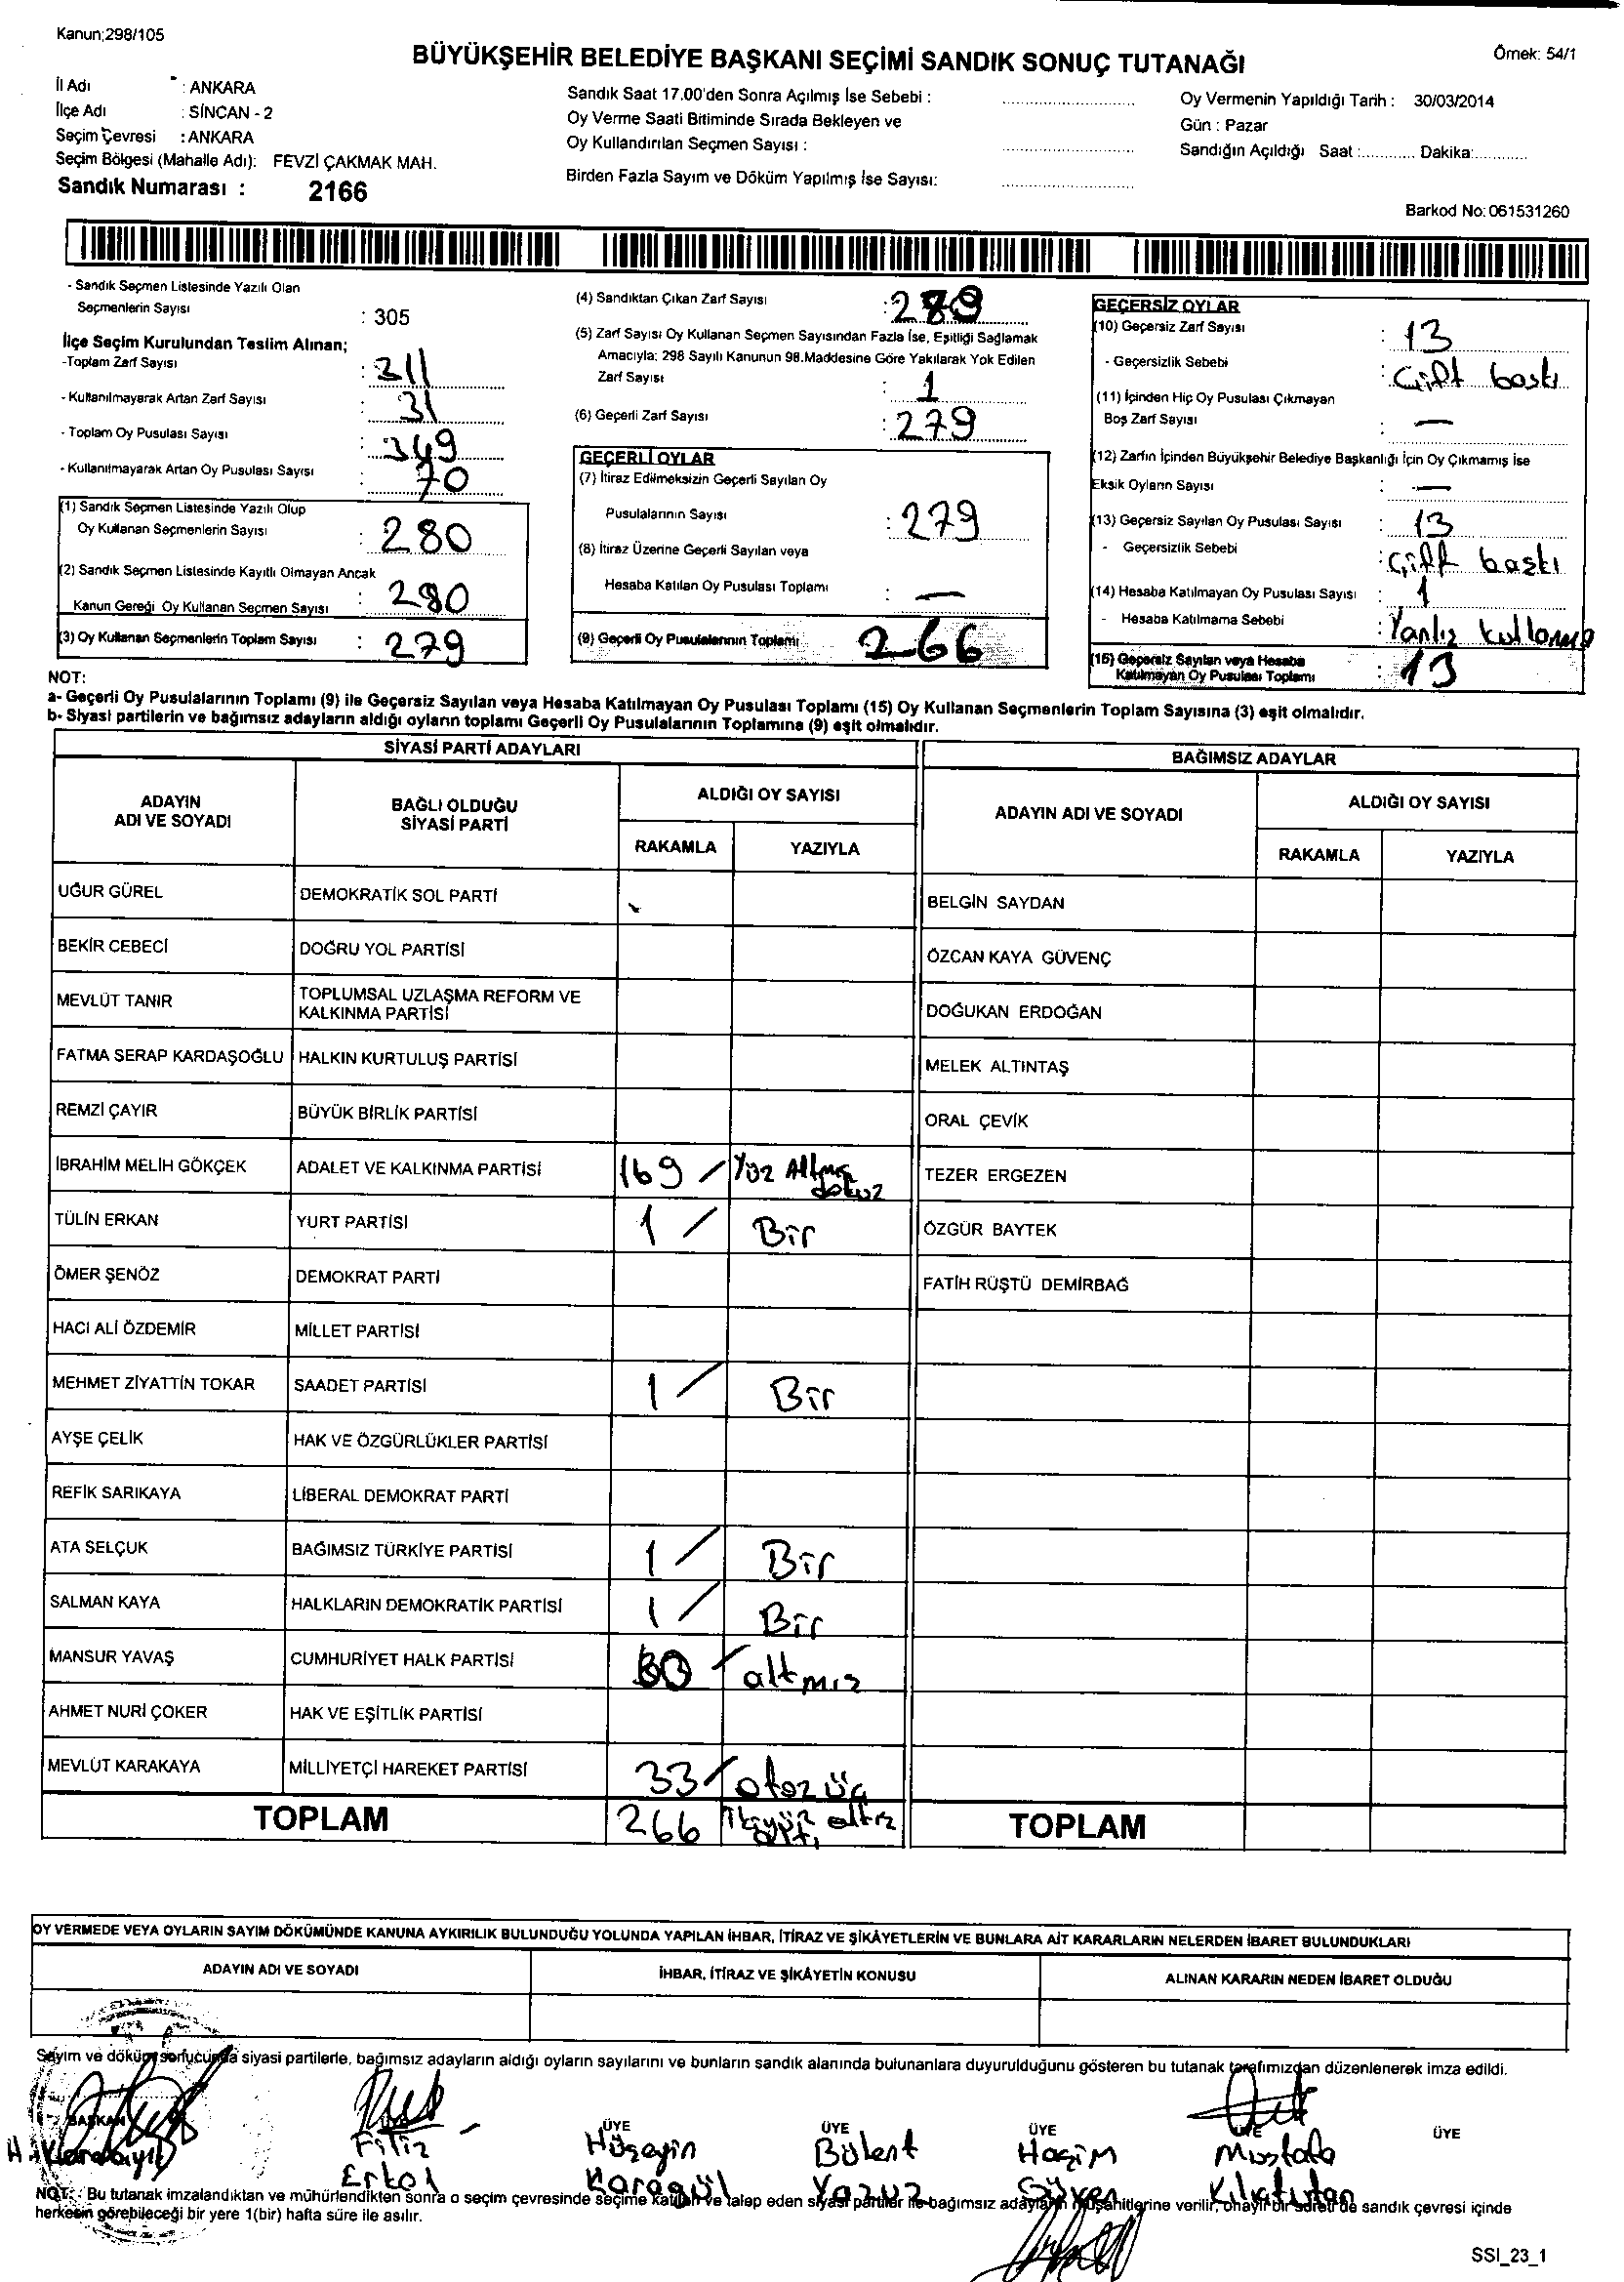 Kanun;298/105
BÜYÜKŞEHİR BELEDİYE BAŞKANI SEÇİMİ SANDIK SONUÇ TUTANAĞI
Örnek: 54/1
İl Adı : ANKARA
İlçe Adı : SİNCAN - 2
Seçim Çevresi : ANKARA
Seçim Bölgesi (Mahalle Adı): FEVZİ ÇAKMAK MAH.
Sandık Numarası : 2166
Sandık Saat 17.00'den Sonra Açılmış İse Sebebi :
Oy Verme Saati Bitiminde Sırada Bekleyen ve
Oy Kullandırılan Seçmen Sayısı :
Birden Fazla Sayım ve Döküm Yapılmış İse Sayısı:
Oy Vermenin Yapıldığı Tarih : 30/03/2014
Gün : Pazar
Sandığın Açıldığı Saat :............ Dakika:............
Barkod No: 061531260
- Sandık Seçmen Listesinde Yazılı Olan
Seçmenlerin Sayısı : 305
İlçe Seçim Kurulundan Teslim Alınan;
-Toplam Zarf Sayısı : 311
- Kullanılmayarak Artan Zarf Sayısı : 31
- Toplam Oy Pusulası Sayısı : 349
- Kullanılmayarak Artan Oy Pusulası Sayısı : 70
(1) Sandık Seçmen Listesinde Yazılı Olup
Oy Kullanan Seçmenlerin Sayısı : 280
(2) Sandık Seçmen Listesinde Kayıtlı Olmayan Ancak
Kanun Gereği Oy Kullanan Seçmen Sayısı : 280
(3) Oy Kullanan Seçmenlerin Toplam Sayısı : 279
(4) Sandıktan Çıkan Zarf Sayısı :
(5) Zarf Sayısı Oy Kullanan Seçmen Sayısından Fazla İse, Eşitliği Sağlamak
Amacıyla; 298 Sayılı Kanunun 98.Maddesine Göre Yakılarak Yok Edilen
Zarf Sayısı : 1
(6) Geçerli Zarf Sayısı : 279
GEÇERLİ OYLAR
(7) İtiraz Edilmeksizin Geçerli Sayılan Oy
Pusulalarının Sayısı : 279
(8) İtiraz Üzerine Geçerli Sayılan veya
Hesaba Katılan Oy Pusulası Toplamı : —
(9) Geçerli Oy Pusulalarının Toplamı 266
GEÇERSİZ OYLAR
(10) Geçersiz Zarf Sayısı : 13
- Geçersizlik Sebebi : Çift baskı
(11) İçinden Hiç Oy Pusulası Çıkmayan
Boş Zarf Sayısı : —
(12) Zarfın İçinden Büyükşehir Belediye Başkanlığı İçin Oy Çıkmamış İse
Eksik Oyların Sayısı : —
(13) Geçersiz Sayılan Oy Pusulası Sayısı : 13
- Geçersizlik Sebebi : Çift baskı
(14) Hesaba Katılmayan Oy Pusulası Sayısı : 1
- Hesaba Katılmama Sebebi : Yanlış kullanma
(15) Geçersiz Sayılan veya Hesaba
Katılmayan Oy Pusulası Toplamı : 13
NOT:
a- Geçerli Oy Pusulalarının Toplamı (9) ile Geçersiz Sayılan veya Hesaba Katılmayan Oy Pusulası Toplamı (15) Oy Kullanan Seçmenlerin Toplam Sayısına (3) eşit olmalıdır.
b- Siyasi partilerin ve bağımsız adayların aldığı oyların toplamı Geçerli Oy Pusulalarının Toplamına (9) eşit olmalıdır.
SİYASİ PARTİ ADAYLARI
ADAYIN ADI VE SOYADI
BAĞLI OLDUĞU SİYASİ PARTİ
ALDIĞI OY SAYISI
RAKAMLA YAZIYLA
UĞUR GÜREL DEMOKRATİK SOL PARTİ
BEKİR CEBECİ DOĞRU YOL PARTİSİ
MEVLÜT TANIR TOPLUMSAL UZLAŞMA REFORM VE KALKINMA PARTİSİ
FATMA SERAP KARDAŞOĞLU HALKIN KURTULUŞ PARTİSİ
REMZİ ÇAYIR BÜYÜK BİRLİK PARTİSİ
İBRAHİM MELİH GÖKÇEK ADALET VE KALKINMA PARTİSİ 169 / Yüz Altmış dokuz
TÜLİN ERKAN YURT PARTİSİ 1 / Bir
ÖMER ŞENÖZ DEMOKRAT PARTİ
HACI ALİ ÖZDEMİR MİLLET PARTİSİ
MEHMET ZİYATTİN TOKAR SAADET PARTİSİ 1 / Bir
AYŞE ÇELİK HAK VE ÖZGÜRLÜKLER PARTİSİ
REFİK SARIKAYA LİBERAL DEMOKRAT PARTİ
ATA SELÇUK BAĞIMSIZ TÜRKİYE PARTİSİ 1 / Bir
SALMAN KAYA HALKLARIN DEMOKRATİK PARTİSİ 1 / Bir
MANSUR YAVAŞ CUMHURİYET HALK PARTİSİ 60 / altmız
AHMET NURİ ÇOKER HAK VE EŞİTLİK PARTİSİ
MEVLÜT KARAKAYA MİLLİYETÇİ HAREKET PARTİSİ 33 / otoz üç
TOPLAM 266
BAĞIMSIZ ADAYLAR
ADAYIN ADI VE SOYADI
ALDIĞI OY SAYISI
RAKAMLA YAZIYLA
BELGİN SAYDAN
ÖZCAN KAYA GÜVENÇ
DOĞUKAN ERDOĞAN
MELEK ALTINTAŞ
ORAL ÇEVİK
TEZER ERGEZEN
ÖZGÜR BAYTEK
FATİH RÜŞTÜ DEMİRBAĞ
TOPLAM
OY VERMEDE VEYA OYLARIN SAYIM DÖKÜMÜNDE KANUNA AYKIRILIK BULUNDUĞU YOLUNDA YAPILAN İHBAR, İTİRAZ VE ŞİKÂYETLERİN VE BUNLARA AİT KARARLARIN NELERDEN İBARET BULUNDUKLARI
ADAYIN ADI VE SOYADI İHBAR, İTİRAZ VE ŞİKÂYETİN KONUSU ALINAN KARARIN NEDEN İBARET OLDUĞU
Sayım ve döküm sonucunda siyasi partilerle, bağımsız adayların aldığı oyların sayılarını ve bunların sandık alanında bulunanlara duyurulduğunu gösteren bu tutanak tarafımızdan düzenlenerek imza edildi.
BAŞKAN ÜYE ÜYE ÜYE ÜYE ÜYE
Filiz Hüseyin Bülent Haşim Mustafa
Erkol Karagül Yavuz Güven
NOT: Bu tutanak imzalandıktan ve mühürlendikten sonra o seçim çevresinde seçime katılan ve talep eden siyasi partiler ile bağımsız adayların müşahitlerine verilir, onaylı bir sureti de sandık çevresi içinde
herkesin görebileceği bir yere 1(bir) hafta süre ile asılır.
SSI_23_1